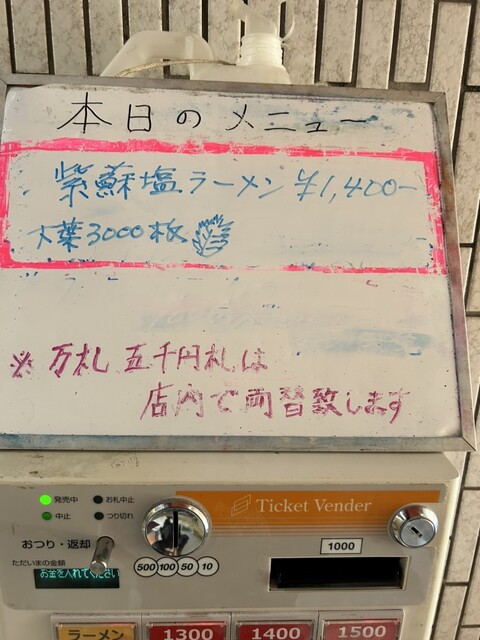 本日のメニュー
紫蘇塩ラーメン ¥1,400-
大葉3000枚
※ 万札 五千円札は
店内で両替致します
発売中 お札中止
中止 つり切れ
Ticket Vender
おつり・返却
1000
ただいまの金額
お金を入れてください
500 100 50 10
ラーメン 1300 1400 1500